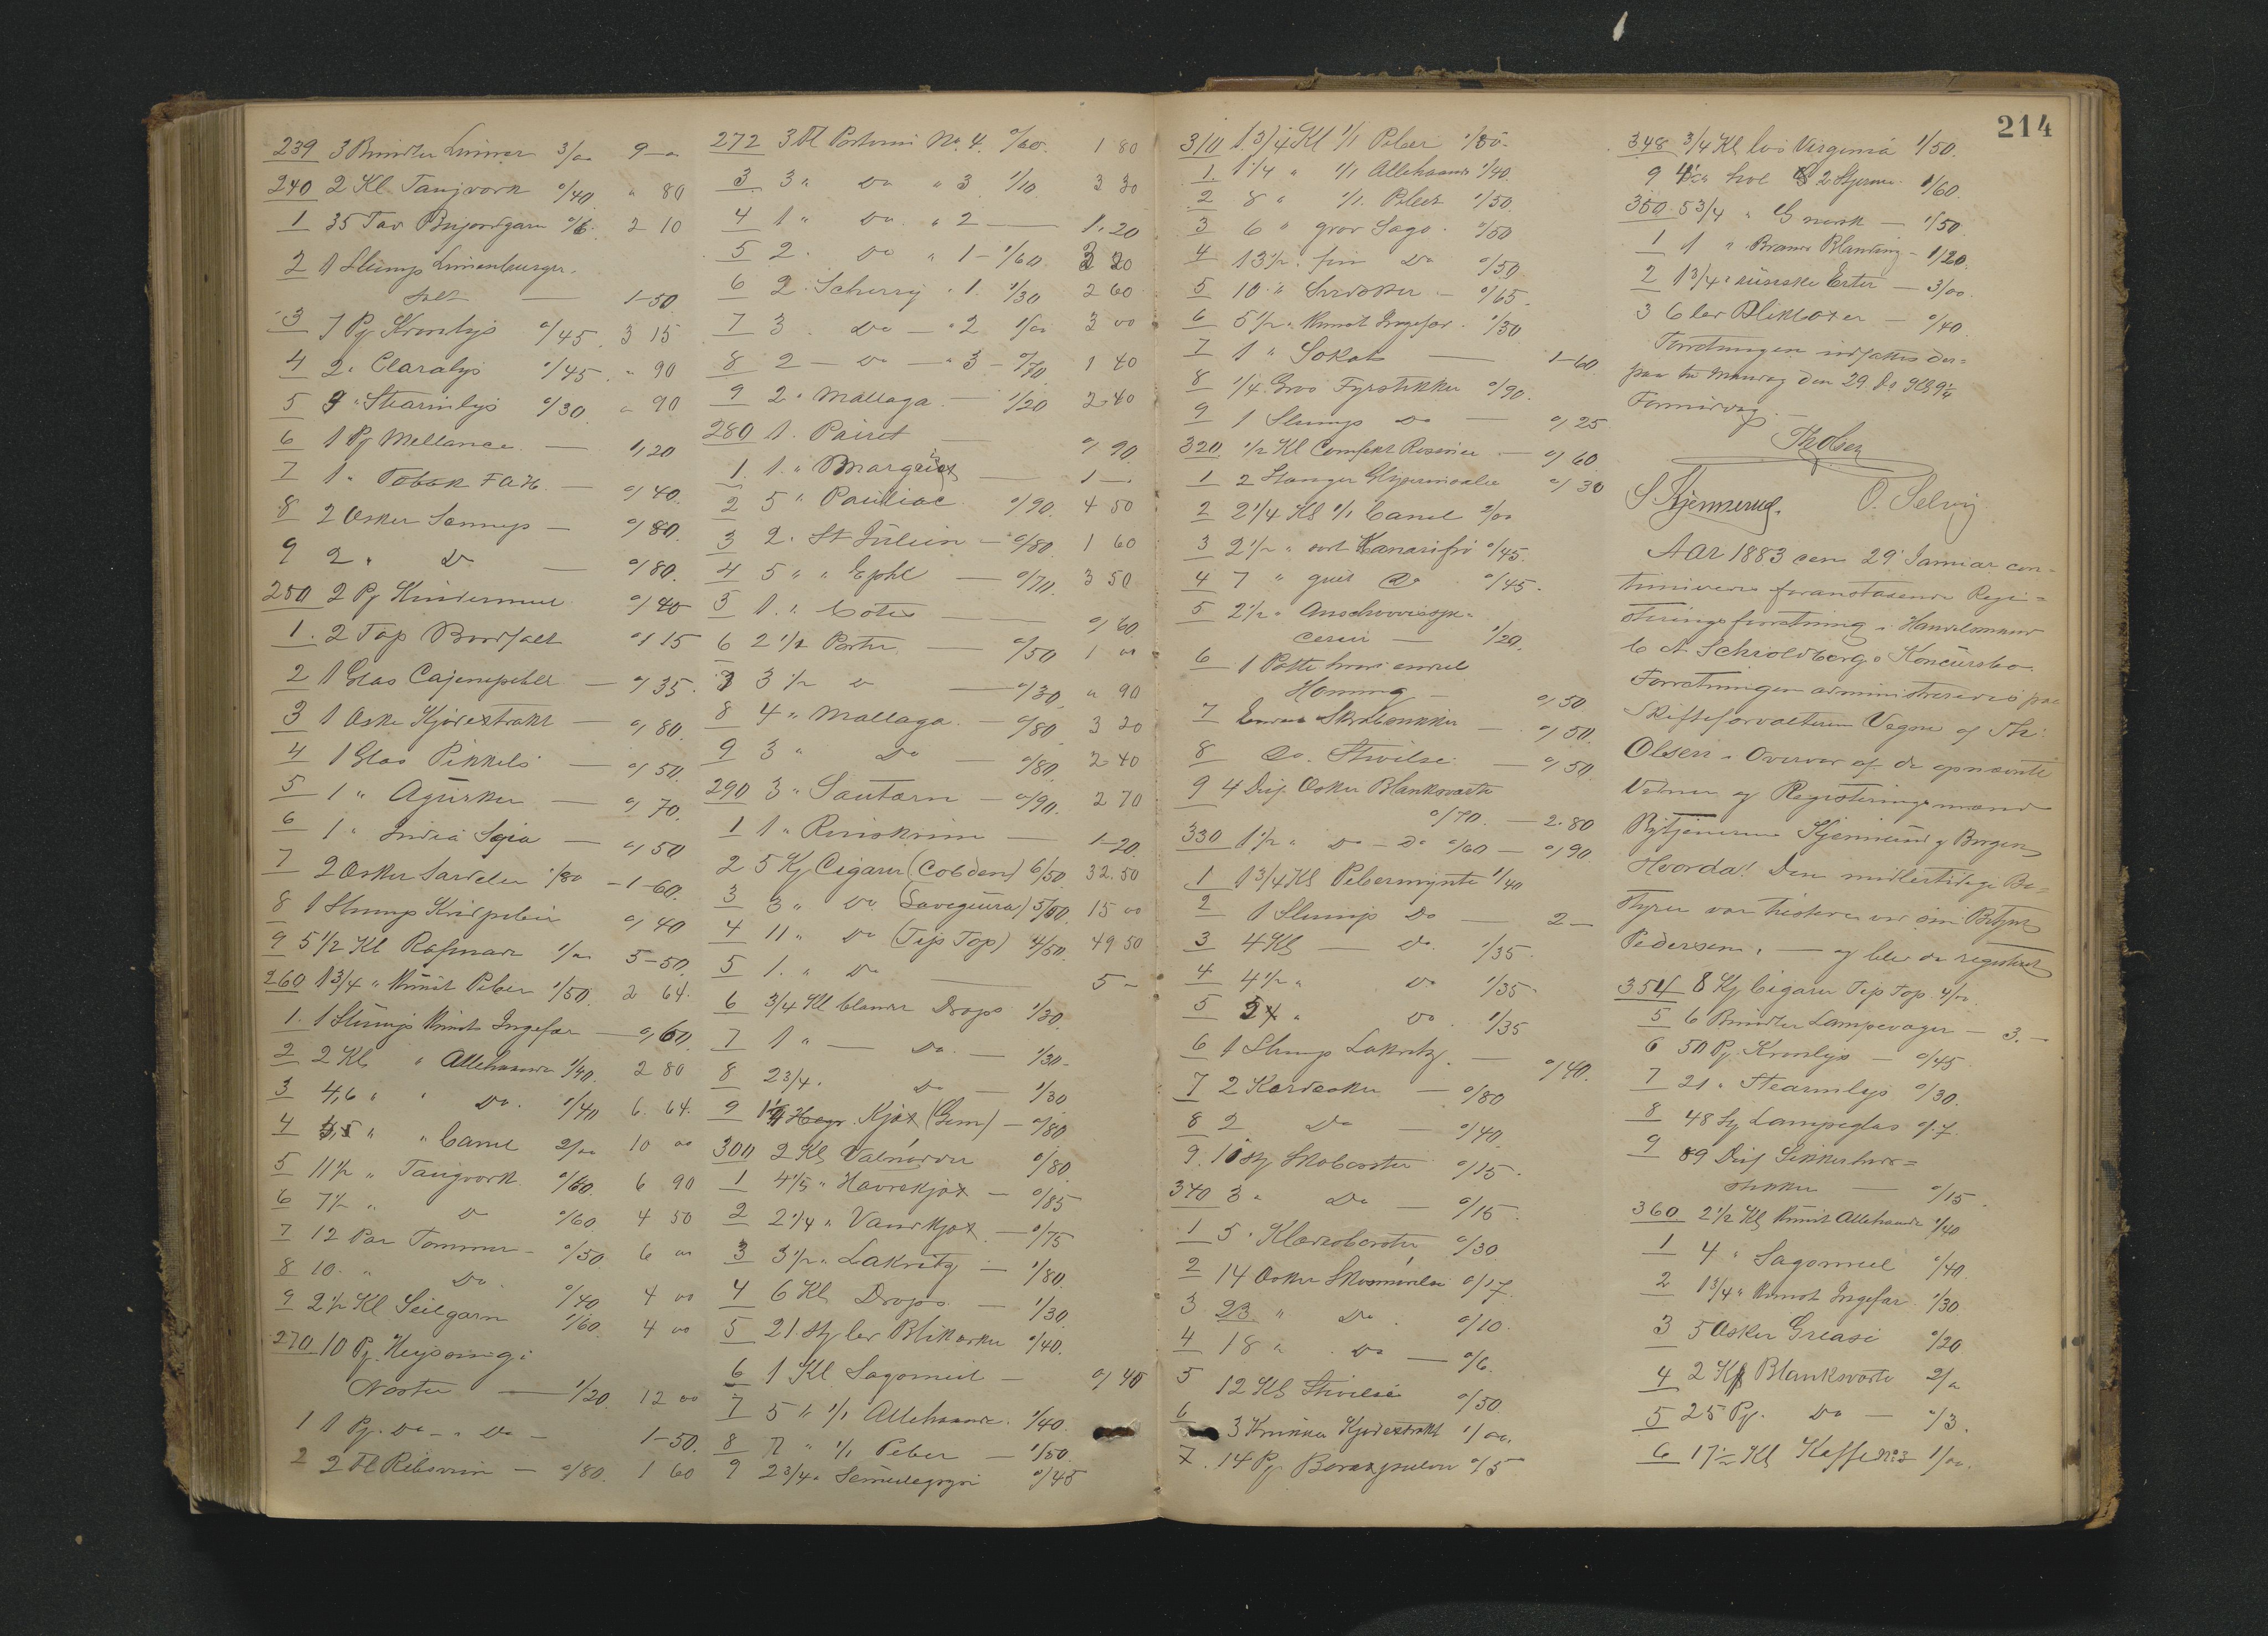 239 3 Bundter Linner 3/00 9-"
240 2 Kl Taugvork 0/40. " 80
1 35 Tav Bujordgarn 0/6. 2 10
2 1 Slump
Salt — 1-50.
3 7 Pg Kronlys 0/45. 3 15
4 2 " Claralys 0/45. " 90
5 3 " Stearinlys 0/30. " 90
6 1 Pg Mellance — 1/20
7 1 " Tobak F & H. — 0/40.
8 2 Æsker Sennep — 0/80.
9 2 " Do — 0/80.
250 2 Pg Kindermeel 0/40
1. 2 Top Bordsalt 0/15
2 1 Glas Cajenepeber — 0/35.
3 1 Æske Kjødextrakt — 0/80.
4 1 Glas Pikkels — 0/50.
5 1 " Agurker — 0/70.
6 1 " India Soja — 0/50
7 2 Æsker Sardeler 0/80 - 1-60.
8 1 Slump Kridpiber 0/40
9 5 1/2 Kl Rafinade 1/00 5-50.
260 1 3/4 " stødt Peber 1/50. 2 64.
1. 1 Slump stødt Ingefær — 0/60.
2 2 Kl " Allehaande 1/40. 2 80
3 4,6 " " Do. 1/40 6. 64.
4 4,5 " " Canel 2/00 10 00
5 11 1/2 " Taugvork 0/60. 6 90
6 7 1/2 " Do 0/60. 4 50
7 12 Par Tømmer - 0/50 6 00
8 10. " Do. 0/40 4 00
9 2 1/2 Kl Seilgarn 1/60. 4 00
270 10 Pg.
Nøster — 1/20. 12 00
1 1 Pg. Do - " Do - 1-50.
2 2 Fl Ribsvin — 0/80. 1 60
272 3 Fl Portvin No. 4. 0/60. 1 80
3 3 " Do " 3 1/10 3 30
4 1 " Do. " 2 — 1.20
5 2. Do " 1 - 1/60. 3 20
6 2. Scherry " 1. 1/30 2 60
7 3. Do — " 2 1/00 3 00
8 2 — Do — " 3 - 0/70 1 40
9 2 " Mallaga. — 1/20 2 40
280 1. — 0/90.
1. 1. " Margaux — 1 —
2 5 " Pauliac 0/90. 4 50
3 2. St Julien — 0/80. 1 60
4 5 " " Ephe — 0/70. 3 50
5 1. " Cotes — 0/60
6 2 1/2 Porter — 0/50 1 00
7 3 1/2 Do — 0/30. " 90
8 4 " Mallaga. — 0/80 3 20
9 3 " Do — 0/80. 2 40
290 3 " Sautarn — 0/90. 2 70
1 1 " Rinskvin — 1-20.
2 5 Kj Cigarer (Cobden) 6/50. 32.50
3 3 " Do 5/00. 15 00
4 11 " Do (Tip Top) 4/50. 49 50
5 1. " Do — 5 -
6 3/4 Kl blandt Drops 1/30.
7 1 " — Do. — 1/30 -
8 2 3/4. Do — 1/30
9 Kjæx (Gem) — 0/80.
300 2 Kl Valnødder 0/80.
1 4 1/5 " Havrekjæx — 0/85
2 2 1/4 " Vandkjæx. — 0/75
3 3 1/2 " Lakritz — 1/80.
4 6 Kl Drops — 1/30.
5 21 Stz lev Blikæsker 0/40.
6 1 Kl Sagomeel — 0/40
7 5 " 1/1 Allehaande. 1/40.
8 7 " 1/1 Peber — 1/50.
9 2 3/4 " Semulegryn 0/45
214
310 1 3/4 Kl 1/1 Peber 1/50.
1. 1 1/4 " 1/1 Allehaande 1/40.
2 8 " 1/1. Peber 1/50.
3 6 " grov Sago. 0/50
4 13 1/2. fin Do 0/50
5 10 " Svedsker — 0/65.
6 5 1/2 " stødt Ingefær. 1/30
7 1 " Sokat — 1-60
8 1/4. Gros Fyrstikker 0/90.
9 1 Slump Do — 0/25
320 1/2 Kl Confekt Rosiner — 0/60
1 2 Stanger Glyserinsæbe 0/30
2 2 1/4 Kl 1/1 Canel 2/00
3 2 1/2 " sort Kanarifrø 0/45.
4 7 " guul Do 0/45.
5 2 1/2 " Anschovisspe=
cerier — 1/20.
6 1 Potte hvori endel
Honning — 0/50.
7 Endeel Skrubsukker — 0/50.
8 Do. Stivelse — 0/50
9 4 Dus. Æsker Blanksværte
0/70. — 2.80
330 1 1/2 " Do — Do 0/60 — 0/90
1 1 3/4 Kl Pebermynte 1/40
2 1 Slump Do — 2 —
3 4 Kl — Do. 1/35.
4 4 1/2 " Do 1/35.
5 5 " Do. 1/35
6 1 Slump Lakritz. — 0/40.
7 2 Kardæsker — 0/80
8 2 Do — 0/40.
9. 10 Stz Skobørster 0/15.
340 3 " Do — 0/15.
1 5. Klædesbørster 0/30
2 14 Æsker Skosmørelse 0/17.
3 23 " Do. 0/10.
4 18 " Do — 0/6.
5 12 Kl Stivelse 0/50.
6 3 Krukker Kjødextrakt 1/00.
7. 14 Pg Boraxpulver 0/5
348 3/4 Kl løs Virginia 1/50.
9 hol 2 Stjerne. 1/60.
350. 5 3/4 " G norsk — 1/50.
1 1 " Brams Blanding — 1/20.
2 1 3/4 " russiske Erter — 3/00.
3 6 lev Blikbøxer — 0/40.
Forretningen udsattes der=
paa til Mandag den 29 Ds Kl 9 1/2
Formiddag. —
Th Olsen
S. Kjennerud. O. Selvig
Aar 1883 den 29 Januar con-
tinueredes foranstaaende Regi=
streringsforretning i Handelsmand
C A Schioldborgs Konkursbo.
Forretningen administreredes paa
Skifteforvalterens Vegne af Th:
Olsen i Overvær af de opnævnte
Vidner og Registreringsmænd
Bytjenerne Kjennerud og Borgen
Hvorda! Den midlertidige Be=
styrer var tilstede ved sin Betjent
Pedersen. — og blev da registreret
354 8 Kj Cigarer Tip Top 4/00.
5 6 Bundter Lampevæger — 3. —
6 50 Pg. Kronlys — 0/45.
7 21 " Stearinlys 0/30.
8 48 Stz Lampeglas 0/7.
9 89 Dus Sikkerheds=
stikker — 0/15.
360. 2 1/2 Kl stødt Allehaande 1/40
1 4 " Sagomeel 0/40.
2 1 3/4 " stødt Ingefær. 1/30
3 5 Æsker Greasi 0/20
4 2 Blanksværte 2/"
5 25 Pg. Do — 0/3.
6 17 1/2 Kl Kaffe No 3 1/00.